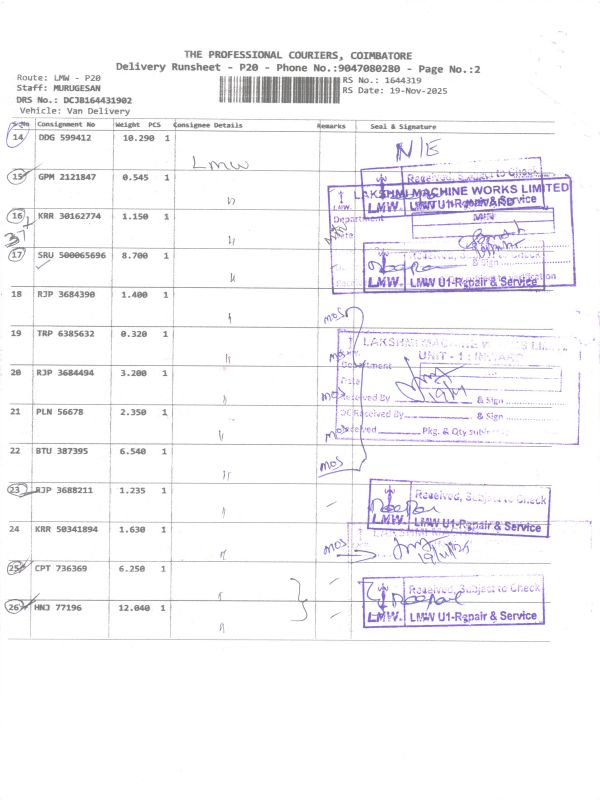 THE PROFESSIONAL COURIERS, COIMBATORE
Delivery Runsheet - P20 - Phone No.:9047080280 - Page No.:2
Route: LMW - P20
Staff: MURUGESAN
DRS No.: DCJB164431902
Vehicle: Van Delivery
RS No.: 1644319
RS Date: 19-Nov-2025
S.No Consignment No Weight PCS Consignee Details Remarks Seal & Signature
14 DDG 599412 10.290 1 LMW N/E
15 GPM 2121847 0.545 1 "
Received, Subject to Check
LMW. LMW U1-Repair & Service
LAKSHMI MACHINE WORKS LIMITED
Department
Date
16 KRR 30162774 1.150 1 "
17 SRU 500065696 8.700 1 "
LMW. LMW U1-Repair & Service
18 RJP 3684390 1.400 1 " MOS
19 TRP 6385632 0.320 1 " MOS
LAKSHMI MACHINE WORKS LIMITED
UNIT - 1 : INWARD
Department
Date
20 RJP 3684494 3.200 1 " MOS
Received By & Sign
19/11
21 PLN 56678 2.350 1 " MOS
Received By & Sign
Received Pkg. & Qty subject
22 BTU 387395 6.540 1 " MOS
23 RJP 3688211 1.235 1 "
Received, Subject to Check
LMW. LMW U1-Repair & Service
24 KRR 50341894 1.630 1 " MOS
19/11/25
25 CPT 736369 6.250 1 "
Received, Subject to Check
26 HNJ 77196 12.040 1 "
LMW. LMW U1-Repair & Service